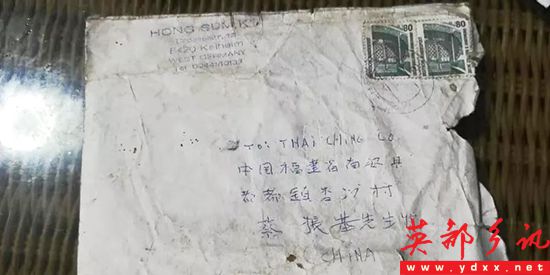 HONG SUM K
8420 Kelheim
WEST GERMANY
80
80
To: THAI CHING CO
中国福建省南安县
都鎮 村
蔡 振基先生收
CHINA
英都乡讯
www.ydxx.net